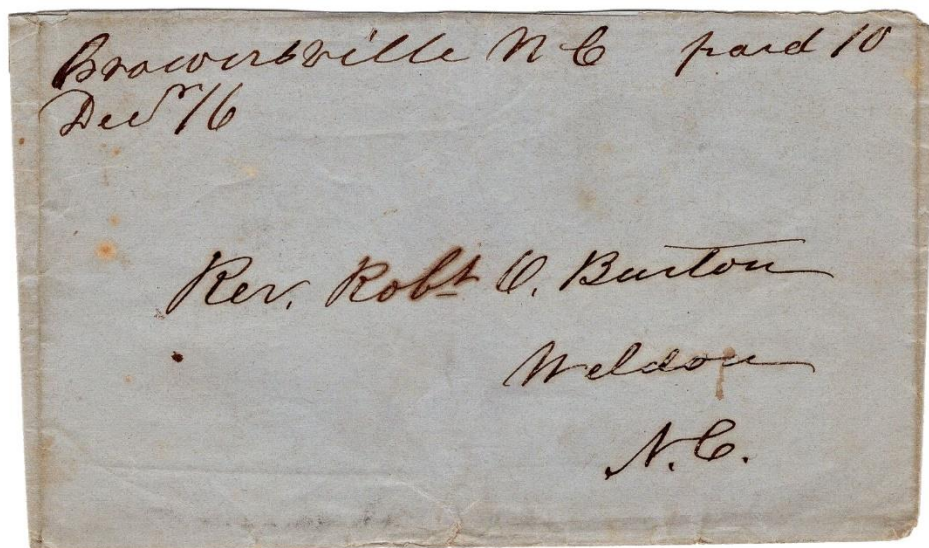 Browersville N C paid 10
Decr 16
Rev. Robt O. Burton
Weldon
N.C.